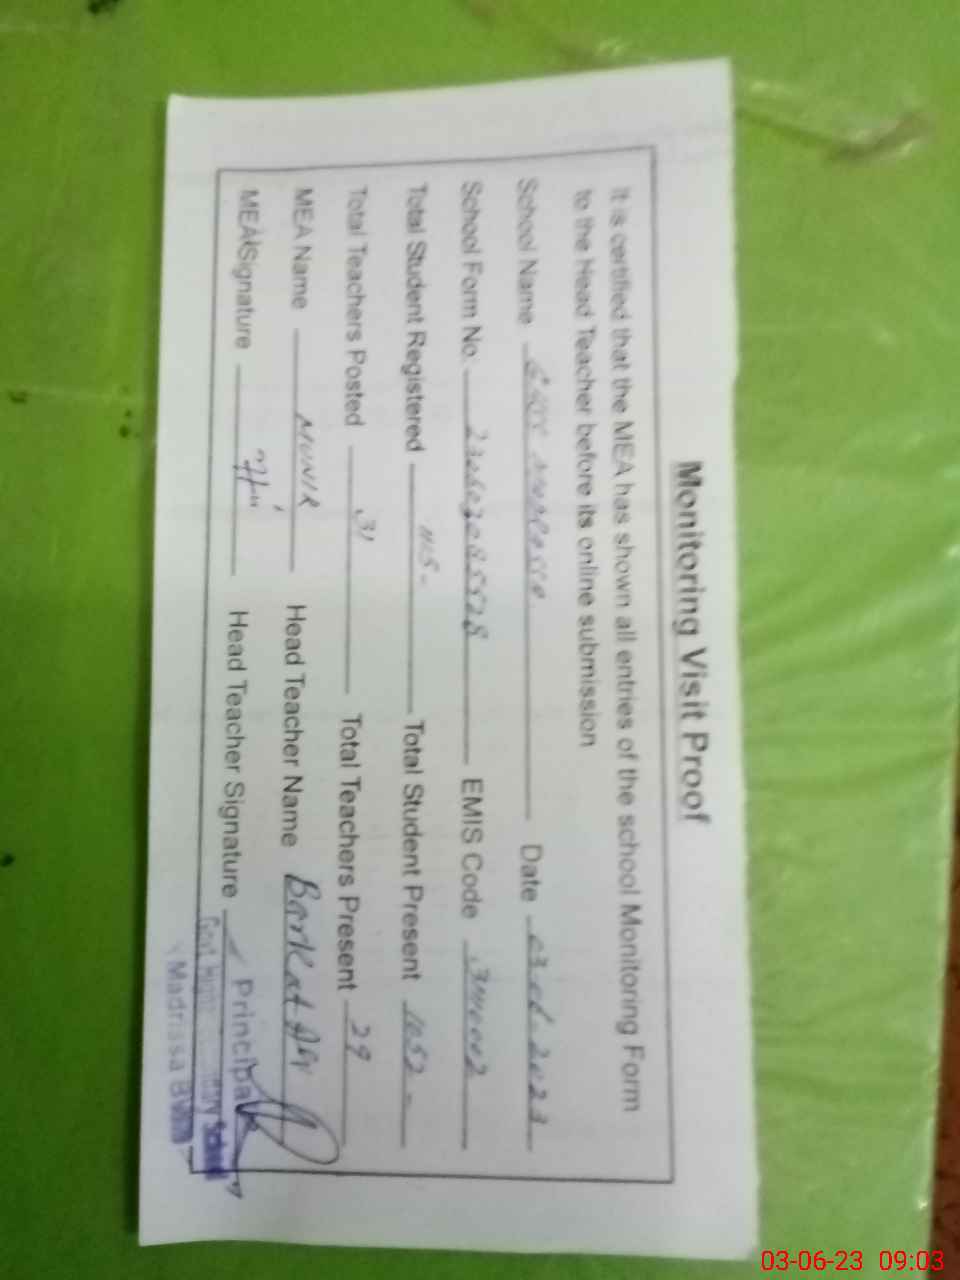 Monitoring Visit Proof
It is certified that the MEA has shown all entries of the school Monitoring Form
to the Head Teacher before its online submission
School Name GHSS Madrassa Date 03.06.2023
School Form No. EMIS Code
Total Student Registered Total Student Present 1052-
Total Teachers Posted 31 Total Teachers Present 29
MEA Name MUNIR Head Teacher Name Barkat Ali
MEA Signature Head Teacher Signature
Principal
Govt. School
Madrissa BWN
03-06-23 09:03